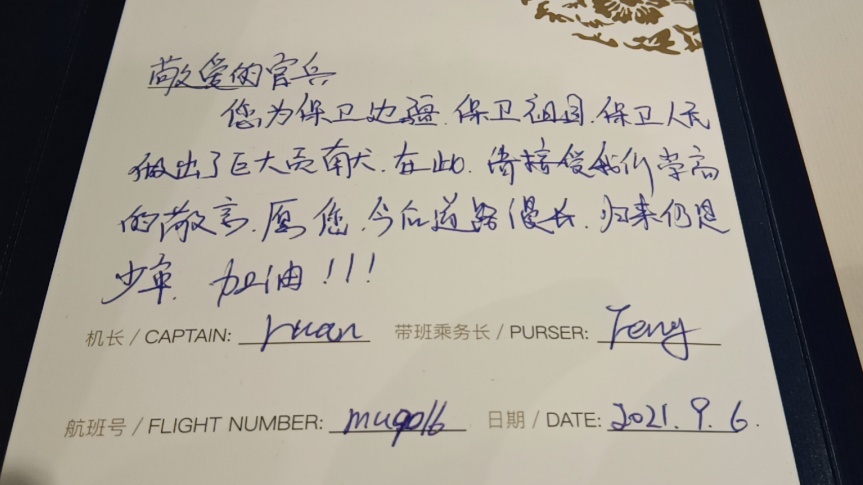 敬爱的官兵
您为保卫边疆.保卫祖国.保卫人民
做出了巨大贡献.在此.请接受我们崇高
的敬意.愿您.今后道路漫长.归来仍是
少年. 加油!!!
机长 / CAPTAIN: ruan 带班乘务长 / PURSER: Feng
航班号 / FLIGHT NUMBER: mu9016 日期 / DATE: 2021.9.6.